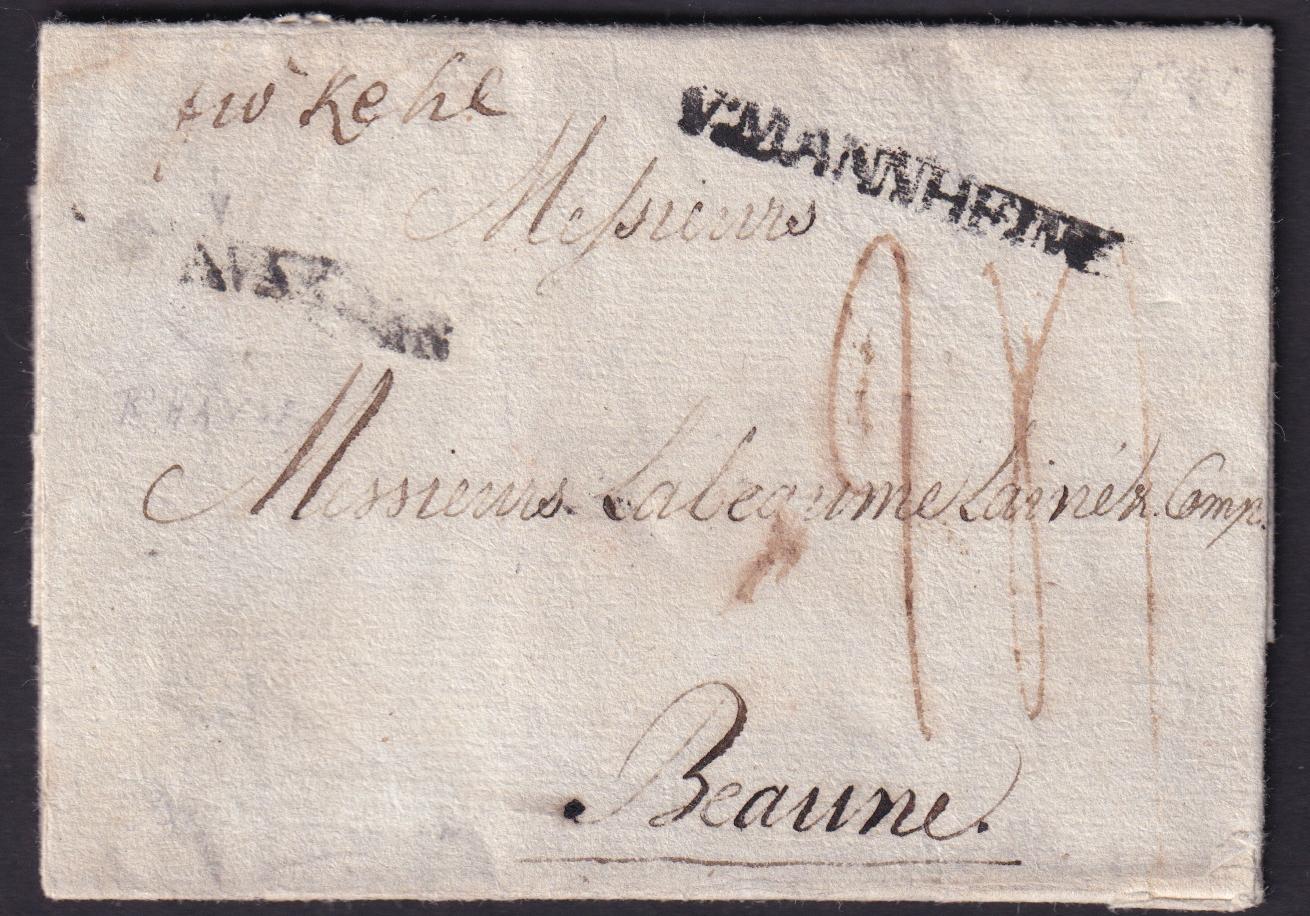 frco Kehl
V. MANNHEIM
Messieurs
Messieurs Labeaume Lainé & Comp.
Beaune.